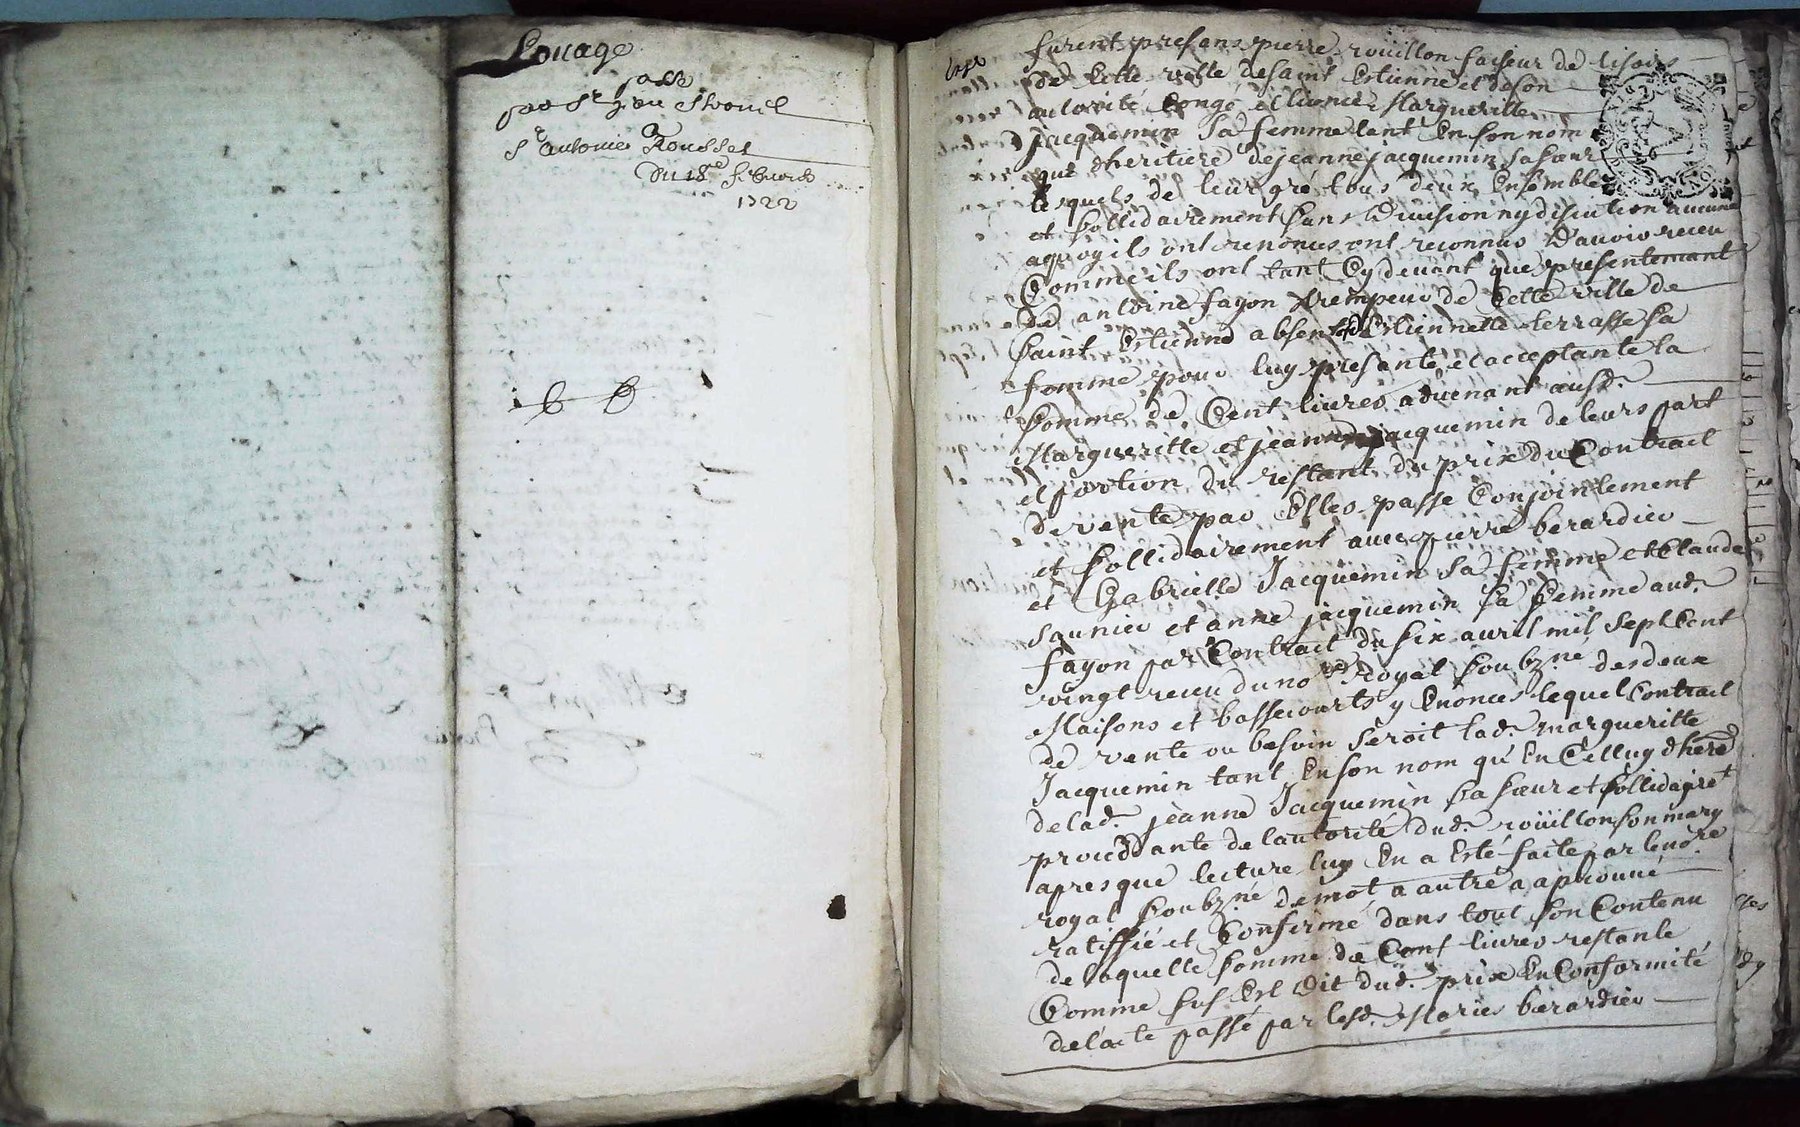 Louage
passé
par Sr
Sr antoine Rousset
Du 18e
1722
furent presans pierre roüillon faiseur de
de cette ville de saint Estienne et de son
autorité Congé et licence Margueritte
jacquemin sa femme tant En son nom
que dheritiere de jeanne jacquemin sa sœur
lesquels de leur gré tous deux Ensemble
et sollidairement sans Division ny discution aucune
aquoy ils ont renoncés ont reconnus D'avoir receu
Comme ils ont tant Cy devant que presentemant
de antoine fayon trempeur de Cette ville de
saint Estienne absent Estiennette terrasse sa
femme pour luy presante et acceptante la
somme de Cent livres advenant ausd.
Margueritte et jeanne jacquemin de leurs part
et portion du restant du prix du Contrait
de vente par Elles passé Conjointement
et sollidairement avec pierre berardier
et Gabrielle Jacquemin sa femme et Claude
saunier et anne jacquemin sa femme aud.
fayon par Contrait du six avril mil sept Cent
vingt receu du nore Royal soubzné des deux
Maisons et bassecourts y Enoncés lequel Contrait
de vente ou besoin seroit lad. margueritte
Jacquemin tant En son nom qu'En Celluy dhere
de lad. jeanne Jacquemin sa sœur et sollidairet
procedante de lautorité dud. roüillon son mary
apres que lecture luy En a Esté faite par led. nore
royal soubzné de mot a autre a aprouvé
ratiffié et Confirmé dans tout son Contenu
de laquelle somme de Cent livres restante
Comme sus Est Dit dud. prix En Conformité
de lacte passé par lesd. Maries berardier